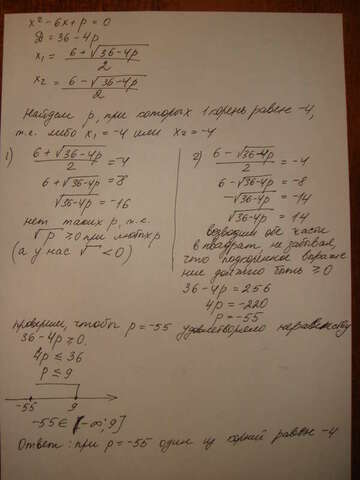 x² - 6x + p = 0
D = 36 - 4p
x₁ = (6 + √(36 - 4p)) / 2
x₂ = (6 - √(36 - 4p)) / 2
Найдем p, при которых 1 корень равен -4,
т.е. либо x₁ = -4 или x₂ = -4
1) (6 + √(36 - 4p)) / 2 = -4
6 + √(36 - 4p) = -8
√(36 - 4p) = -16
нет таких p, т.к.
√p ≥ 0 при любых p
(а у нас √ < 0)
2) (6 - √(36 - 4p)) / 2 = -4
6 - √(36 - 4p) = -8
-√(36 - 4p) = -14
√(36 - 4p) = 14
возводим обе части
в квадрат, не забывая,
что подкоренное выраже
ние должно быть ≥ 0
36 - 4p = 256
4p = -220
p = -55
проверим, чтобы p = -55 удовлетворяло неравенству
36 - 4p ≥ 0
4p ≤ 36
p ≤ 9
-55 9
-55 ∈ [-∞; 9]
Ответ: при p = -55 один из корней равен -4